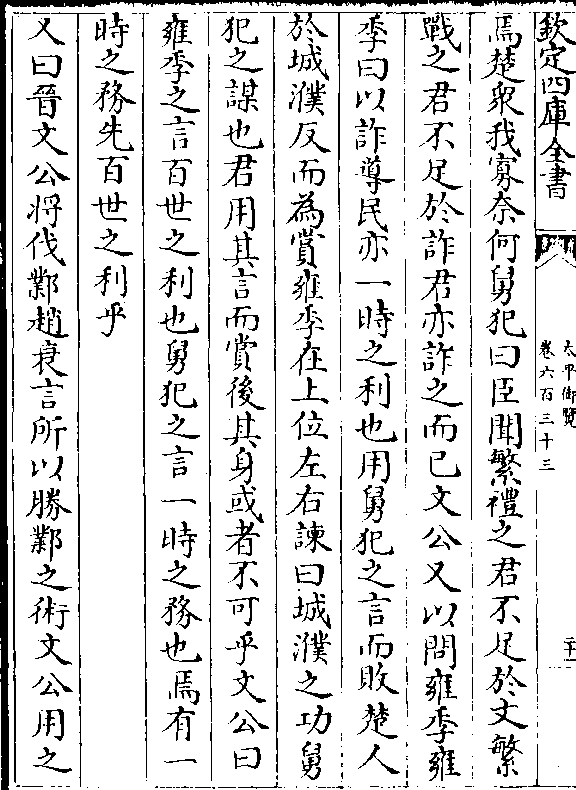 欽定四庫全書
太平御覽
卷六百三十三
焉楚衆我寡奈何舅犯曰臣聞繁禮之君不足於文繁
戰之君不足於詐君亦詐之而已文公又以問雍季雍
季曰以詐導民亦一時之利也用舅犯之言而敗楚人
於城濮反而為賞雍季在上位左右諫曰城濮之功舅
犯之謀也君用其言而賞後其身或者不可乎文公曰
雍季之言百世之利也舅犯之言一時之務也焉有一
時之務先百世之利乎
又曰晉文公將伐鄴趙衰言所以勝鄴之術文公用之